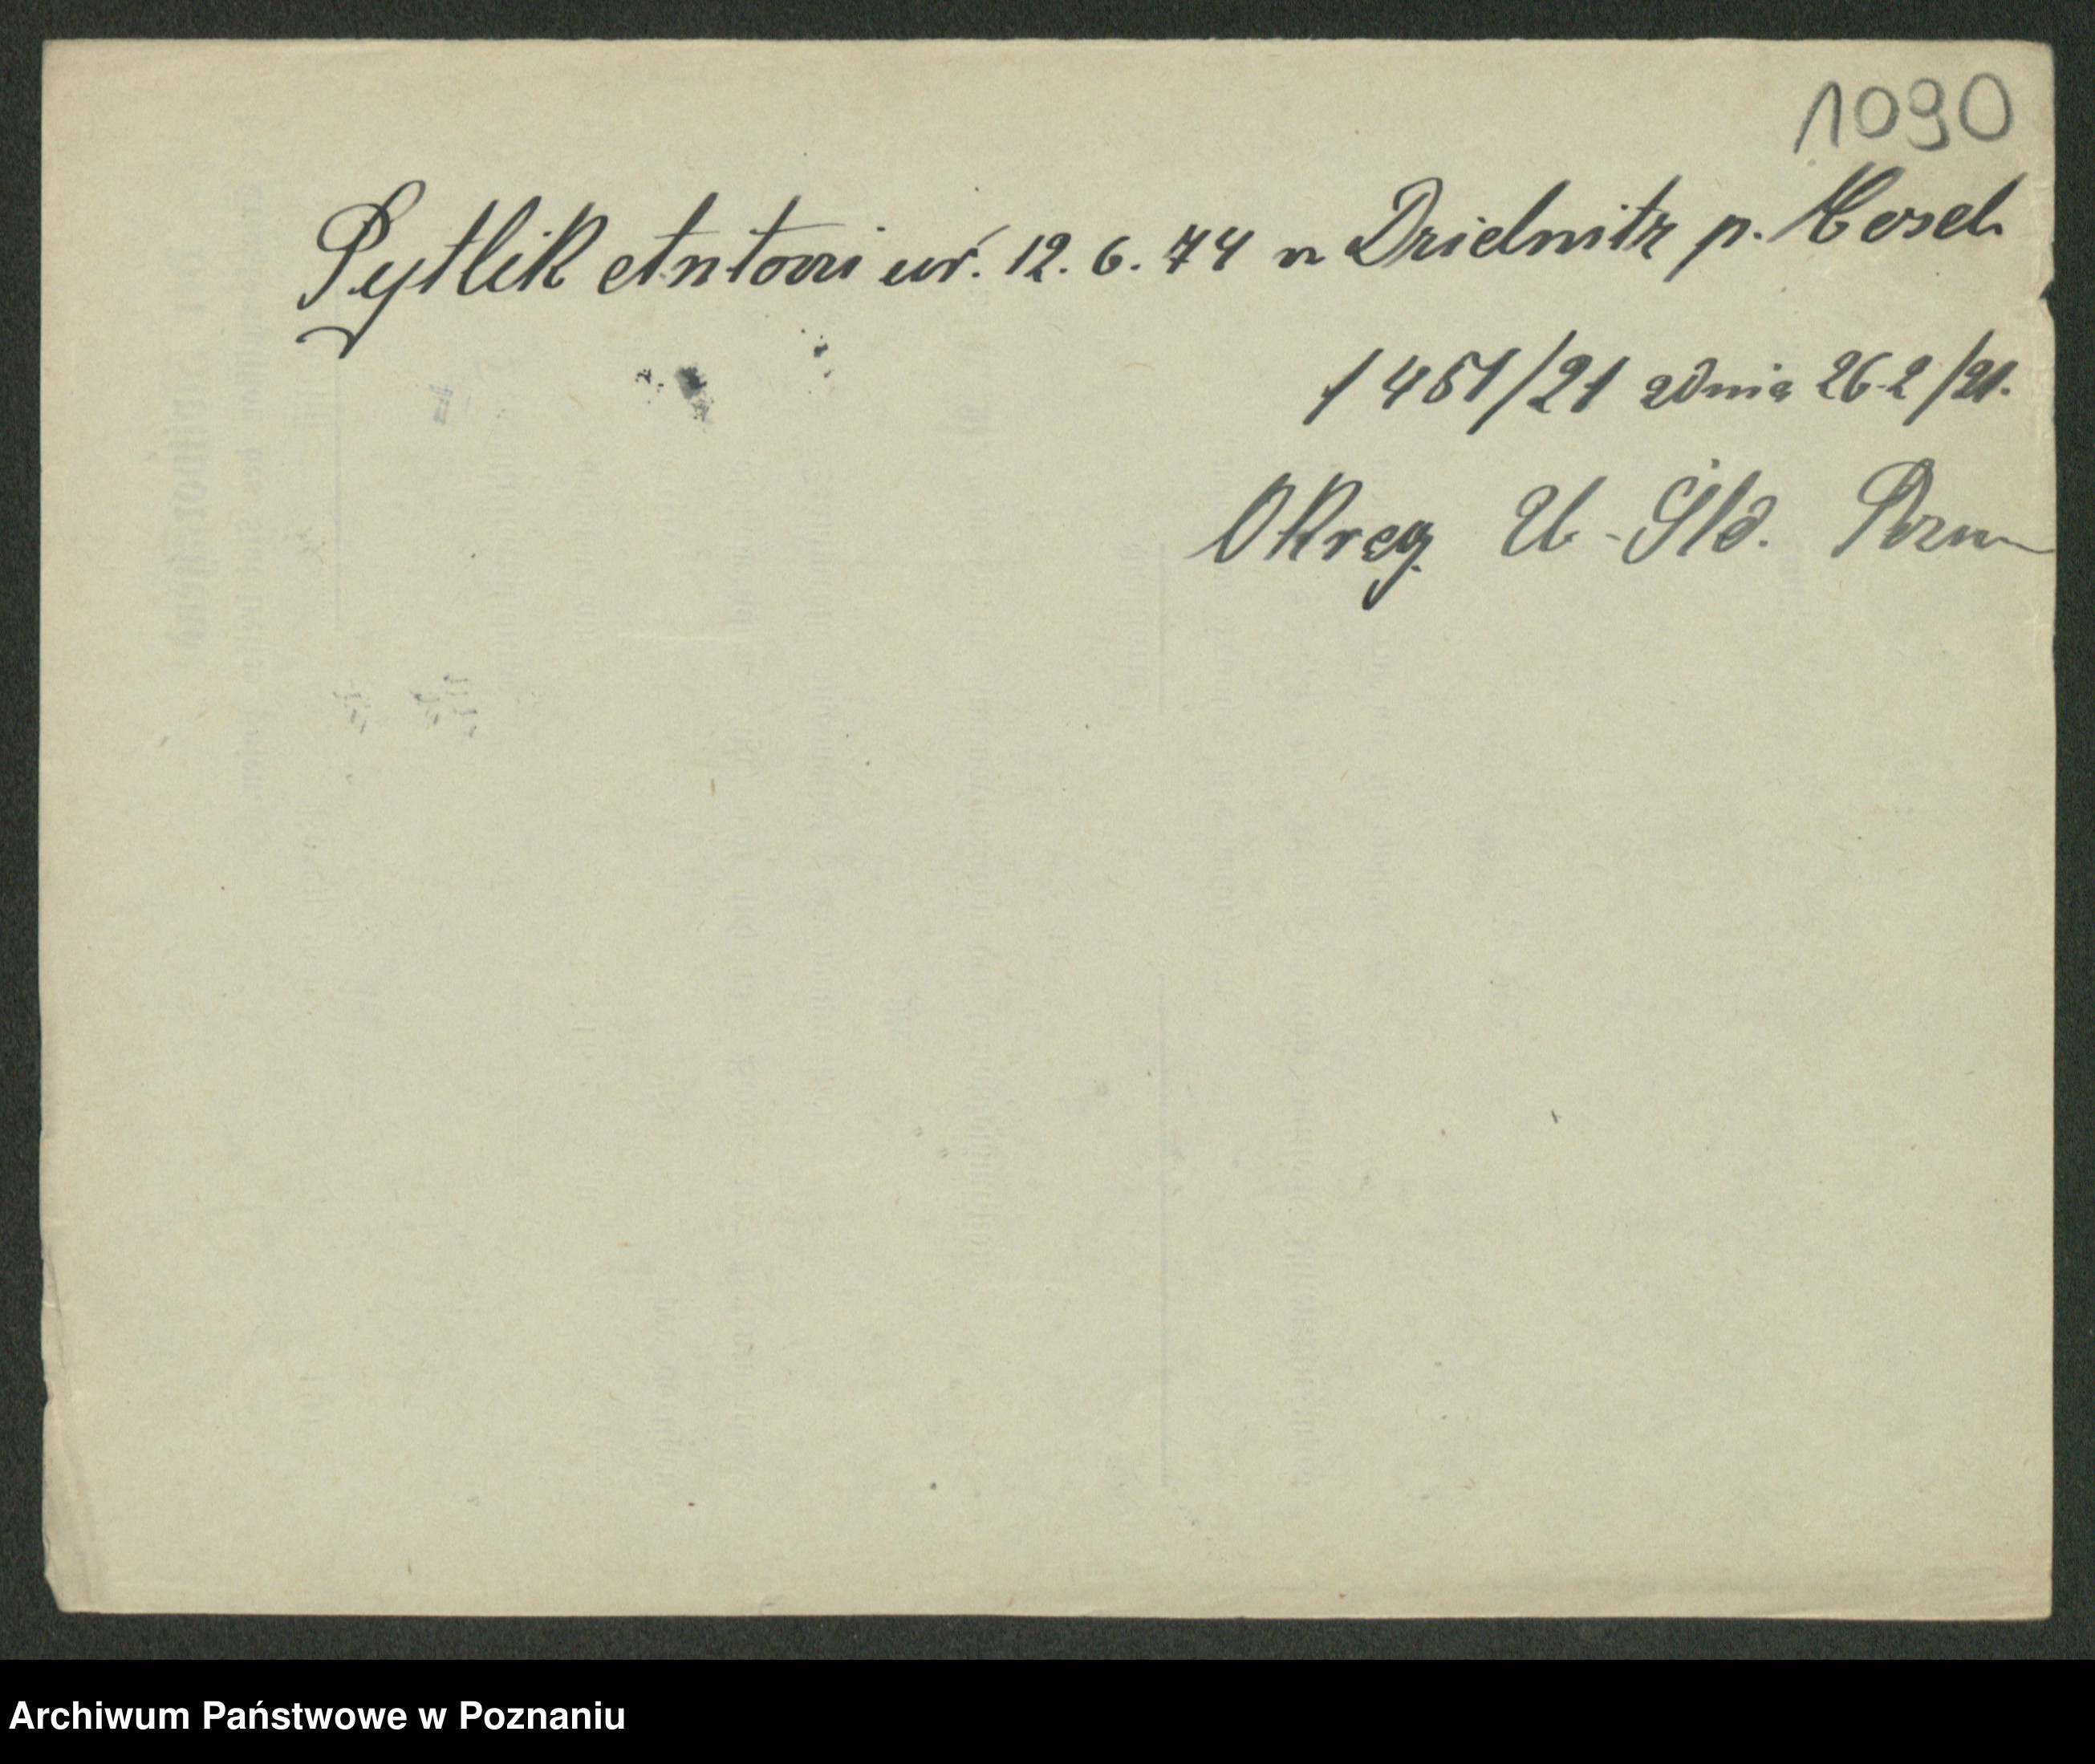 1090
Pytlik Antoni ur. 12.6.74 w Dzielnitz p. Cosel.
1451/21 z dnia 26.2/21.
Okręg. U-Śld. Pozn
Archiwum Państwowe w Poznaniu